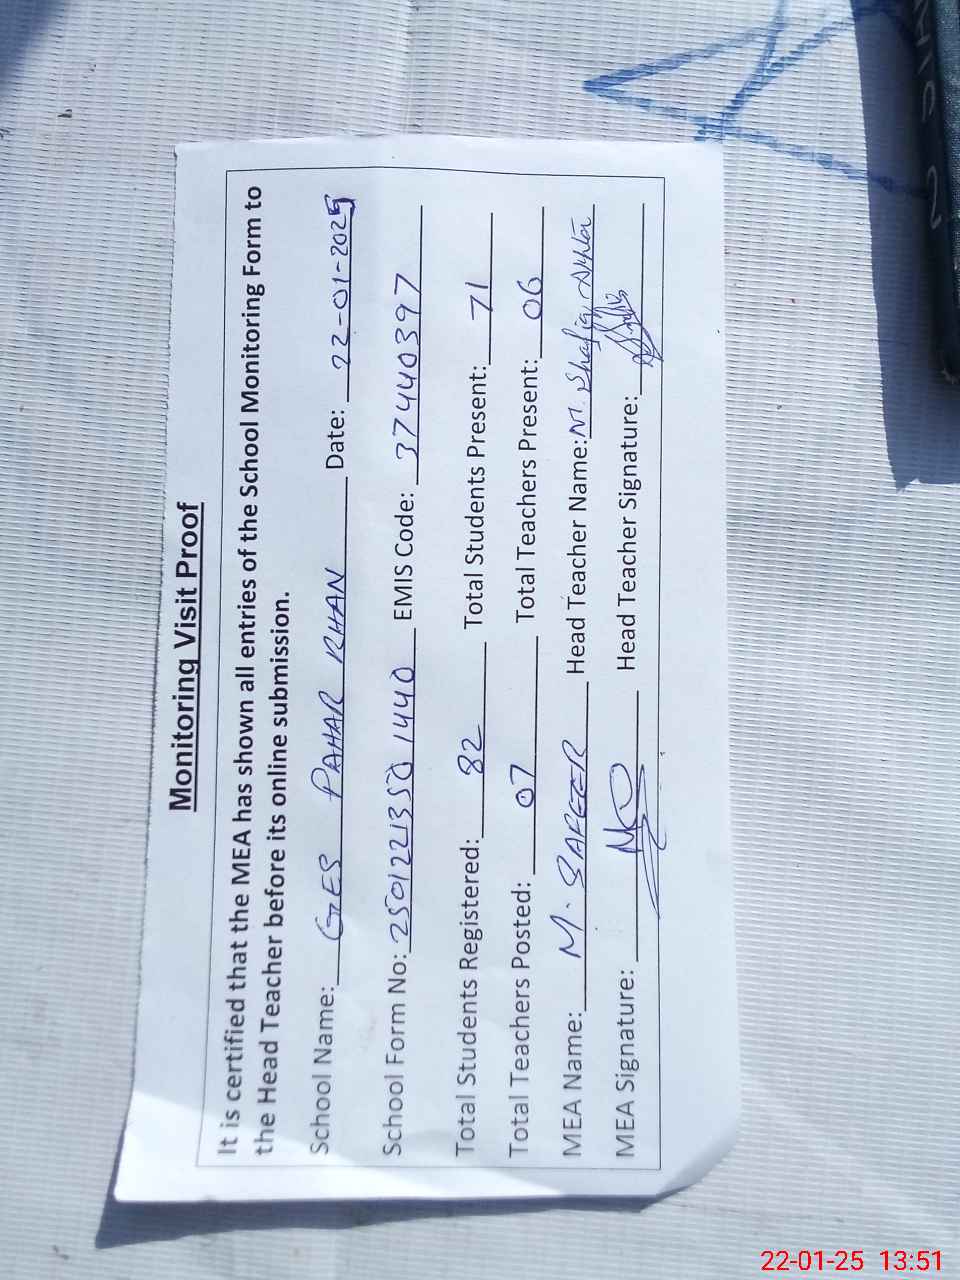 Monitoring Visit Proof
It is certified that the MEA has shown all entries of the School Monitoring Form to
the Head Teacher before its online submission.
School Name: GES PAHAR KHAN Date: 22-01-2025
School Form No: 2501221350 1440 EMIS Code: 37440397
Total Students Registered: 82 Total Students Present: 71
Total Teachers Posted: 07 Total Teachers Present: 06
MEA Name: M. SAFEER Head Teacher Name: M. Shafiq Akhtar
MEA Signature: Head Teacher Signature:
22-01-25 13:51